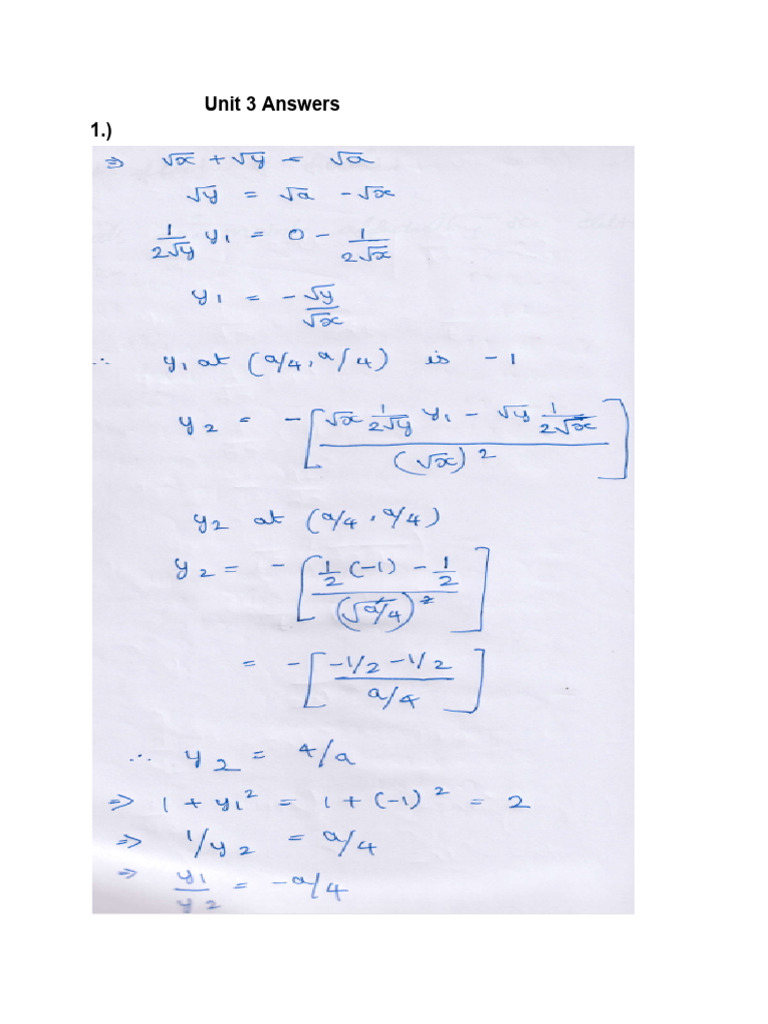 Unit 3 Answers
1.)
⇒ √x + √y = √a
√y = √a - √x
1/2√y y₁ = 0 - 1/2√x
y₁ = - √y/√x
∴ y₁ at (a/4, a/4) is -1
y₂ = - [ (√x 1/2√y y₁ - √y 1/2√x) / (√x)² ]
y₂ at (a/4, a/4)
y₂ = - [ (1/2 (-1) - 1/2) / (√a/4)² ]
= - [ (-1/2 -1/2) / a/4 ]
∴ y₂ = 4/a
⇒ 1 + y₁² = 1 + (-1)² = 2
⇒ 1/y₂ = a/4
⇒ y₁/y₂ = -a/4